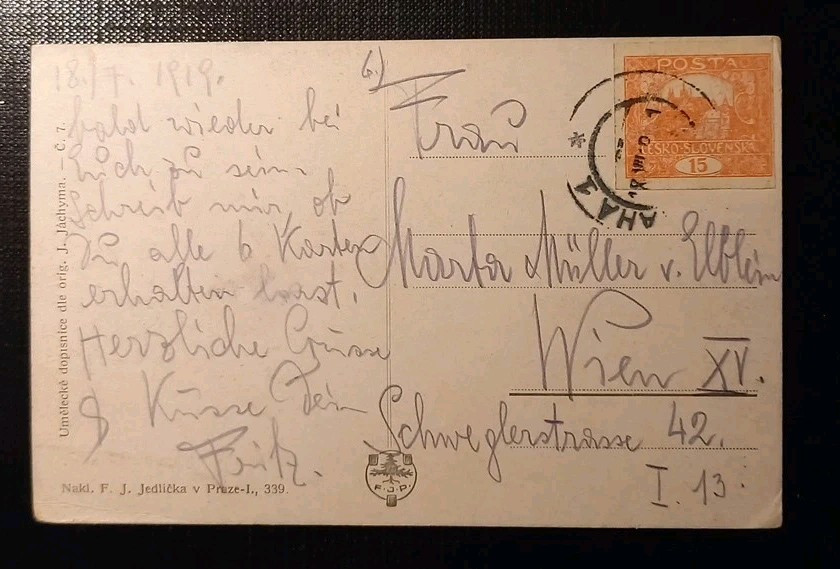 18./7. 1919.
bald wieder bei
Euch zu sein.
Schreib mir, ob
Du alle 6 Karten
erhalten hast.
Herzliche Grüsse
& Küsse Dein
Fritz.
6.)
Frau
Marta Müller v. Elblein
Wien XV.
Schweglerstrasse 42.
I. 13.
POSTA
ČESKO-SLOVENSKÁ
15
PRAHA 1
Umělecké dopisnice dle orig. J. Jáchyma. — Č. 7.
Nakl. F. J. Jedlička v Praze-I., 339.
F. J. P.